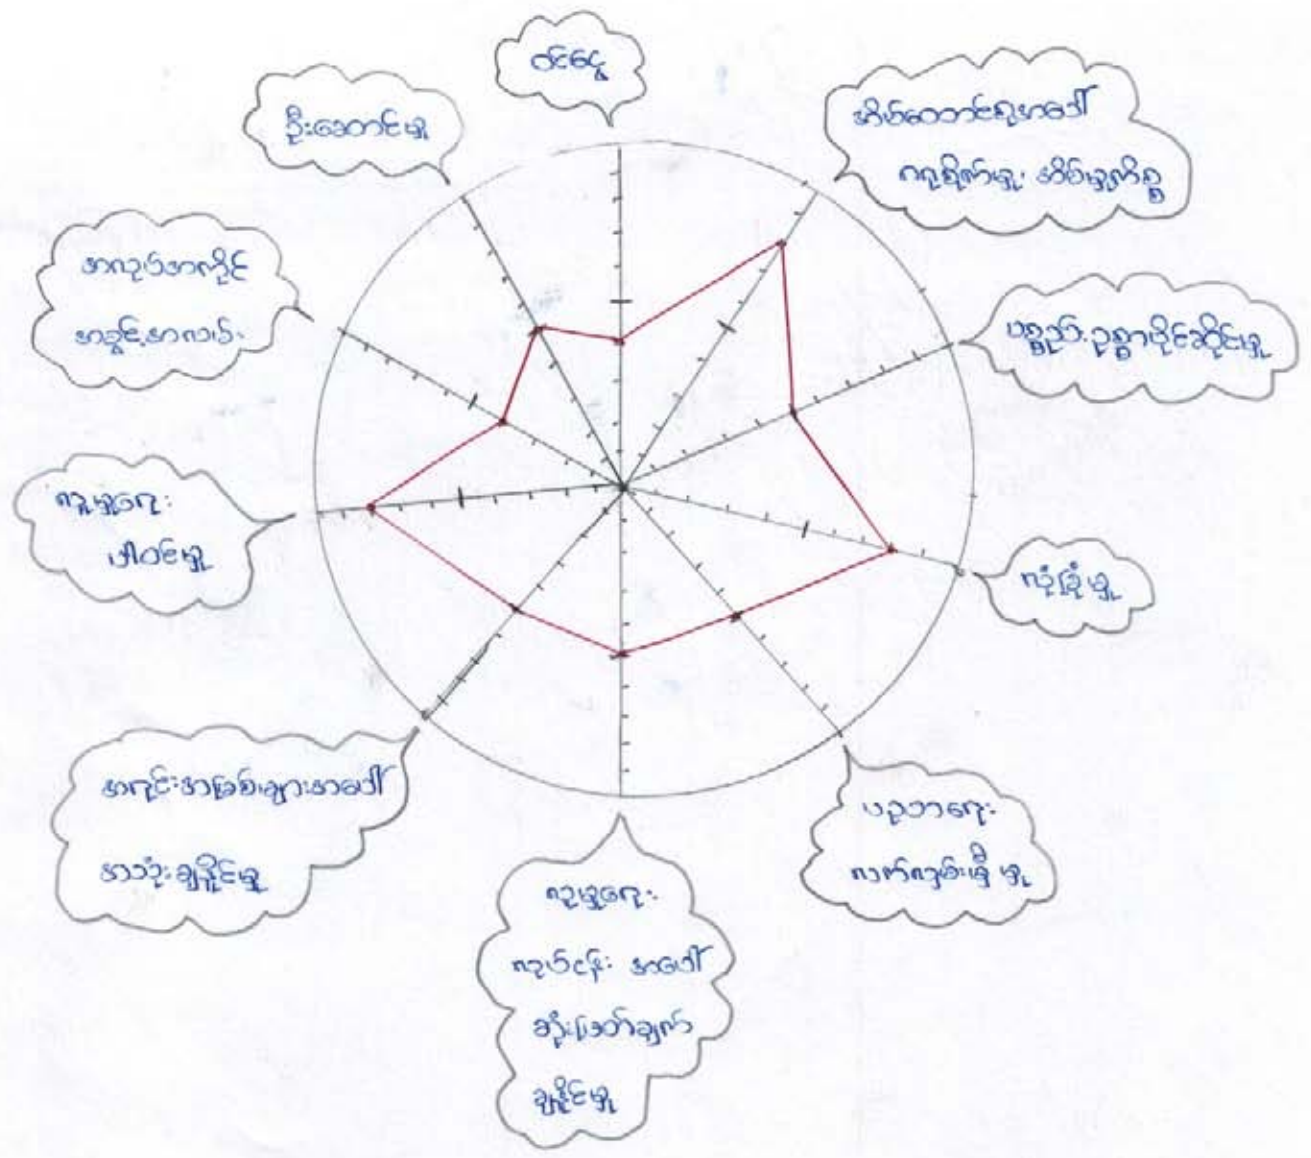 ဝင်ငွေ
အိမ်ထောင်ရေးအပေါ်
ဂရုစိုက်မှု၊ အိမ်မှုကိစ္စ
ပစ္စည်းဥစ္စာပိုင်ဆိုင်မှု
လုံခြုံမှု
ပညာရေး
လက်လှမ်းမှီမှု
လူမှုရေး
လုပ်ငန်း အပေါ်
ဆုံးဖြတ်ချက်
ချနိုင်မှု
အရင်းအမြစ်များအပေါ်
အသုံးချနိုင်မှု
လူမှုရေး
ပါဝင်မှု
အလုပ်အကိုင်
အခွင့်အလမ်း
ဦးဆောင်မှု